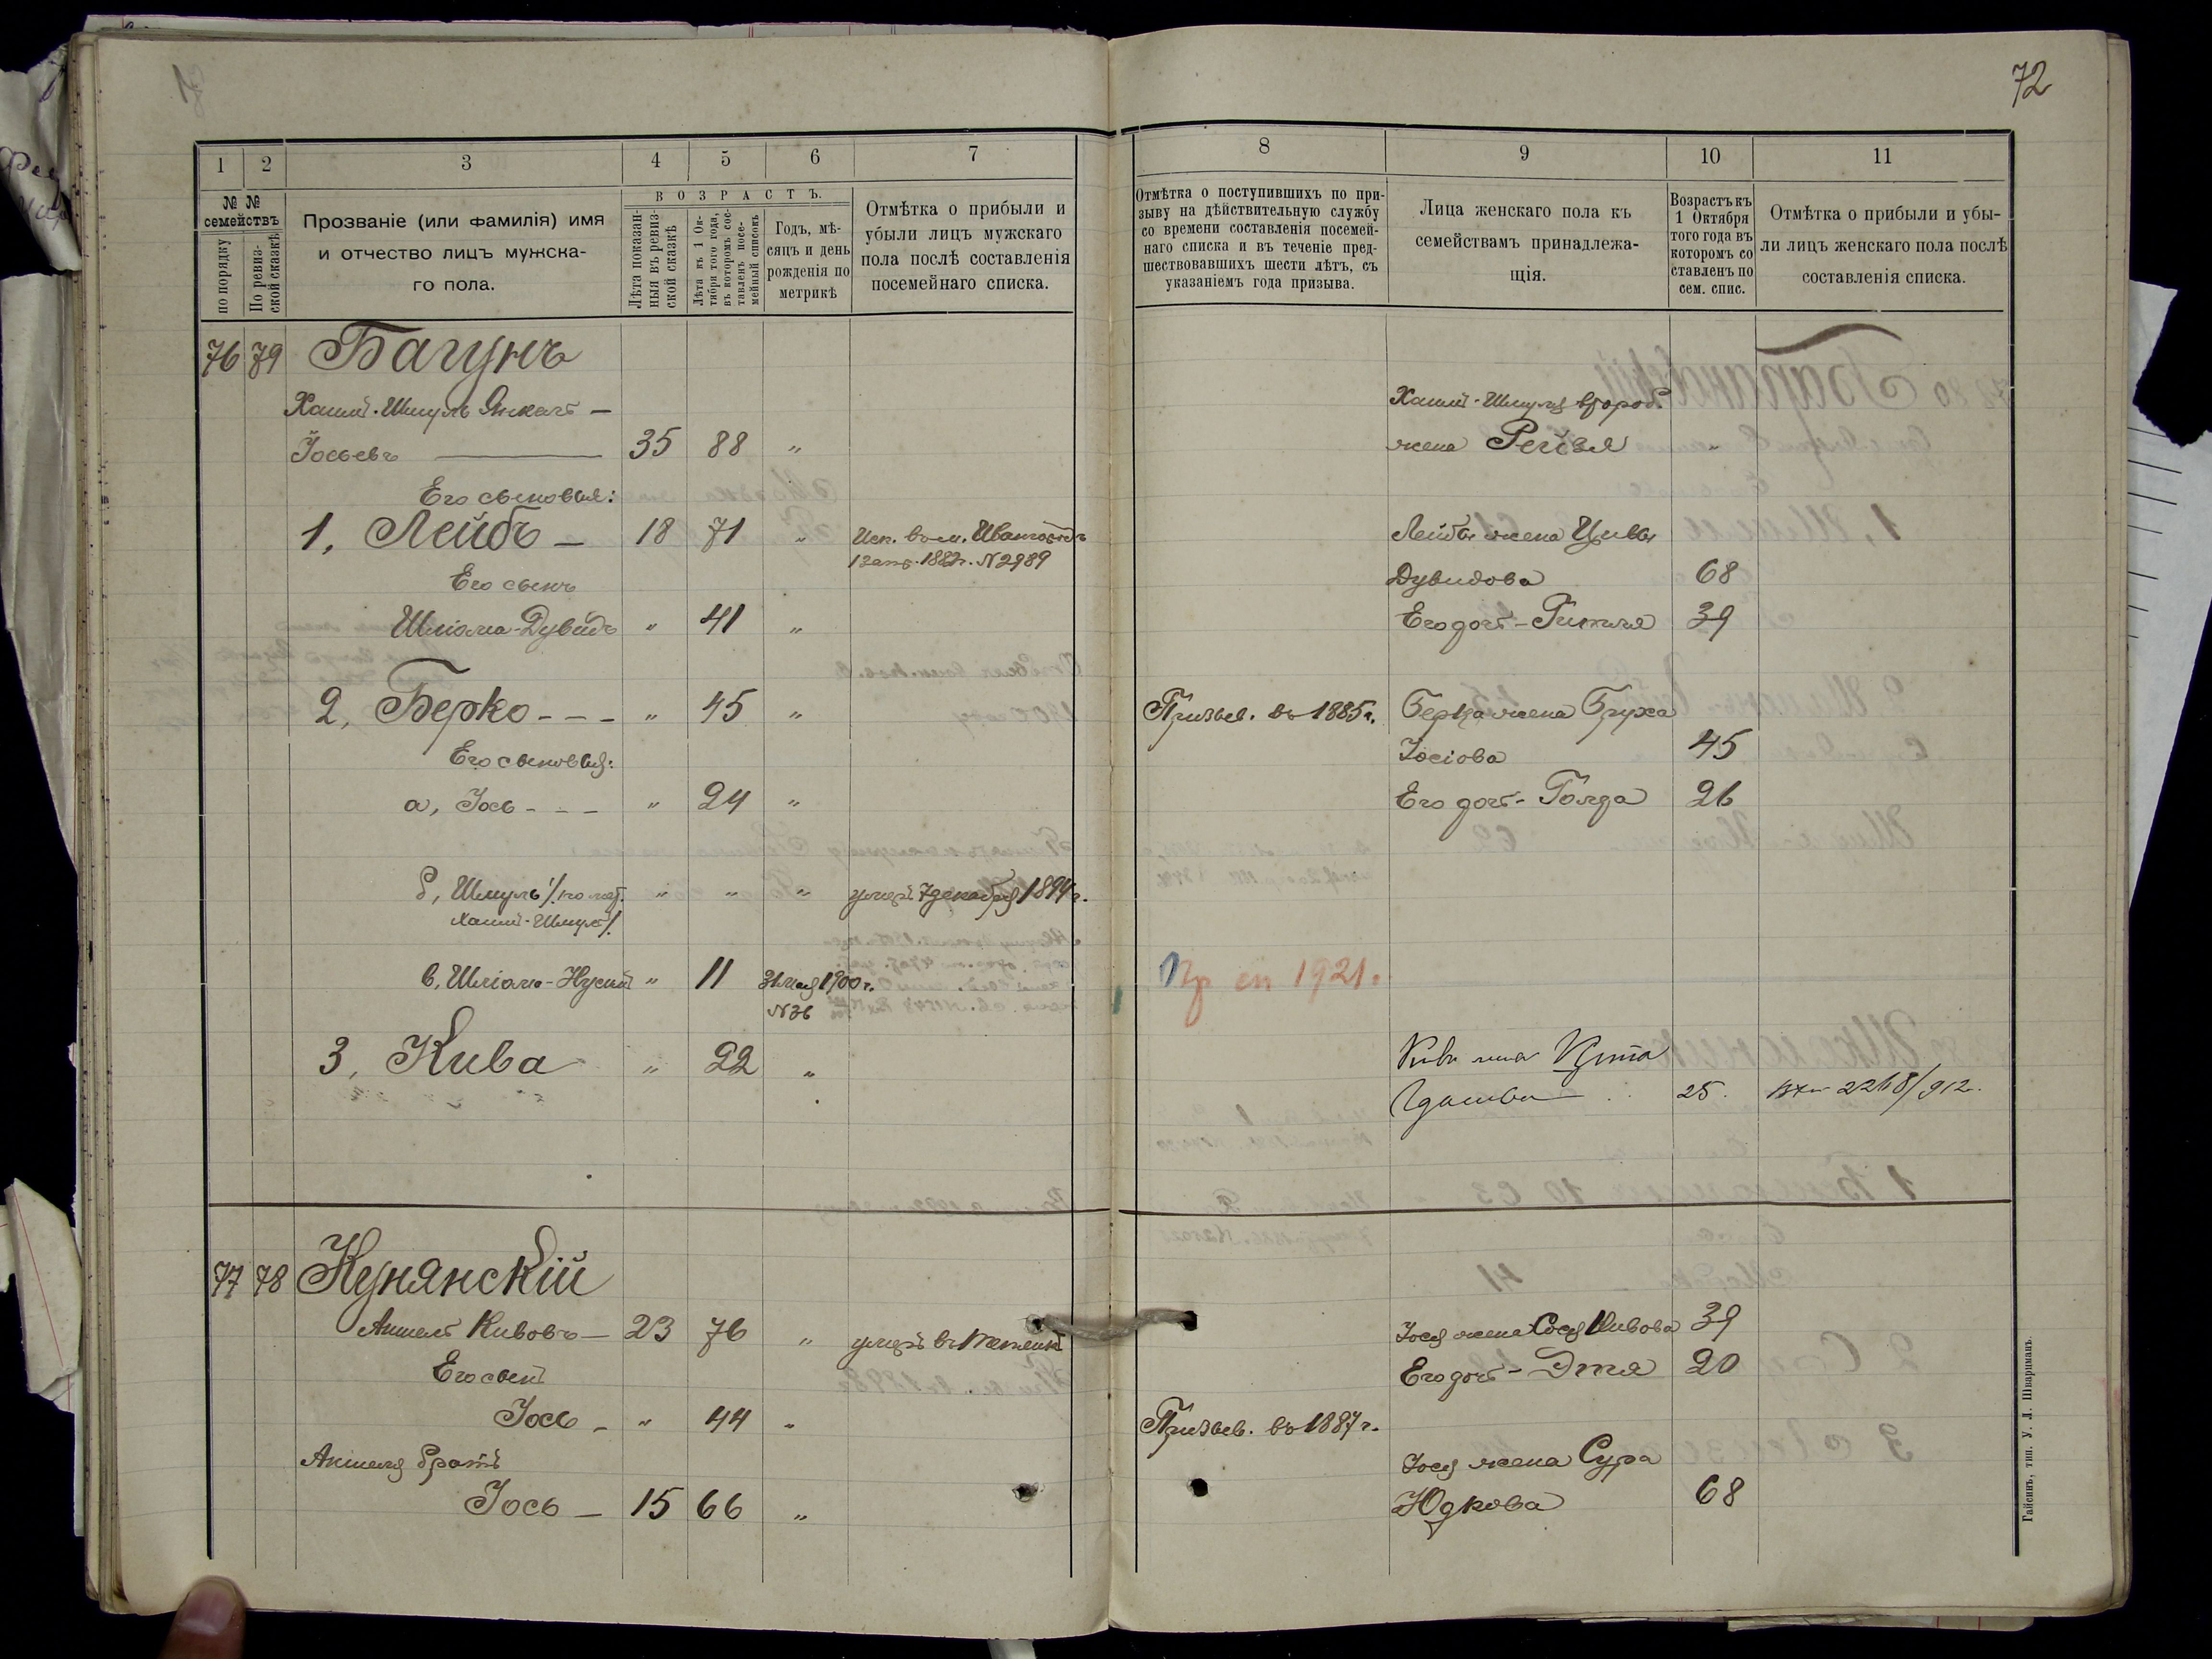 72
1 2 3 4 5 6 7
№ №
семействъ
по порядку
По ревиз-
ской сказкѣ
Прозваніе (или фамилія) имя
и отчество лицъ мужска-
го пола.
ВОЗРАСТЪ.
Лѣта показан-
ныя въ ревиз-
ской сказкѣ
Лѣта къ 1 Ок-
тября того года,
въ которомъ сос-
тавленъ посе-
мейный списокъ
Годъ, мѣ-
сяцъ и день
рожденія по
метрикѣ
Отмѣтка о прибыли и
убыли лицъ мужскаго
пола послѣ составленія
посемейнаго списка.
76 79 Багунъ
Хаимъ-Шмуль Янкель —
Іосьевъ 35 88 „
Его сыновья:
1, Лейбъ — 18 71 „
1882г. № 2989
Его сынъ
Шліома-Дувидъ „ 41 „
2, Берко - - - „ 45 „
Его сыновья:
а, Іось - - - „ 24 „
б, Шмуль /: по мет. „ „ „ умеръ 7 декабря 1894г.
Хаимъ-Шмуль/.
в, Шліома-Нусинъ „ 11 31 мая 1900 г.
№ 36
3, Кива „ 22 „
77 78 Кунянскій
Аншель Кивовъ — 23 76 „ умеръ въ
Его сынъ
Іось - „ 44 „
Аншеля братъ
Іось — 15 66 „
8 9 10 11
Отмѣтка о поступившихъ по при-
зыву на дѣйствительную службу
со времени составленія посемей-
наго списка и въ теченіе пред-
шествовавшихъ шести лѣтъ, съ
указаніемъ года призыва.
Лица женскаго пола къ
семействамъ принадлежа-
щія.
Возрастъ къ
1 Октября
того года въ
которомъ со
ставленъ по
сем. спис.
Отмѣтка о прибыли и убы-
ли лицъ женскаго пола послѣ
составленія списка.
Хаимъ-Шмуля второб.
жена Рейзя „
Лейбы жена Цивья
Дувидова 68
Его доч - Ритля 39
Призыв. въ 1885 г. Берка жена Бруха
Іосіова 45
Его доч - Голда 26
Пр 1921.
25. 2268/912.
Іося жена Сося Кивова 39
Его доч - Этя 20
Призыв. въ 1887 г.
Іося жена Сура
Юдкова 68
Гайсинъ, тип. У. Л. Шварцманъ.